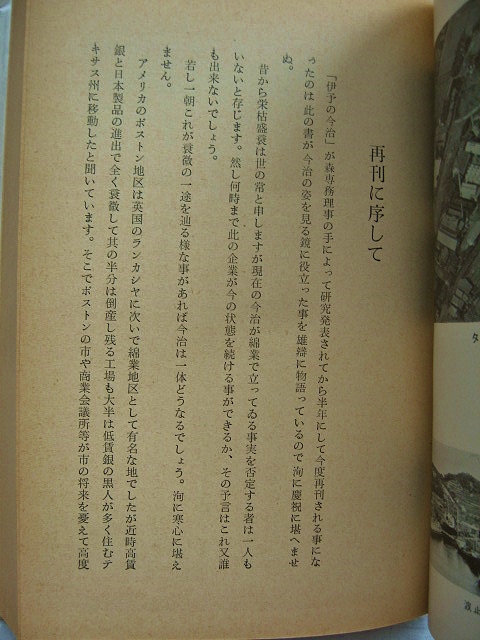 再刊に序して
「伊予の今治」が森専務理事の手によって研究発表されてから半年にして今度再刊される事にな
ったのは此の書が今治の姿を見る鏡に役立った事を雄辯に物語っているので洵に慶祝に堪へませ
ぬ。
昔から栄枯盛衰は世の常と申しますが現在の今治が綿業で立ってゐる事実を否定する者は一人も
いないと存じます。然し何時まで此の企業が今の状態を続ける事ができるか、その予言はこれ又誰
も出来ないでしょう。
若し一朝これが衰微の一途を辿る様な事があれば今治は一体どうなるでしょう。洵に寒心に堪え
ません。
アメリカのボストン地区は英国のランカシヤに次いで綿業地区として有名な地でしたが近時高賃
銀と日本製品の進出で全く衰微して其の半分は倒産し残る工場も大半は低賃銀の黒人が多く住むテ
キサス州に移動したと聞いています。そこでボストンの市や商業会議所等が市の将来を憂えて高度
タ
波止